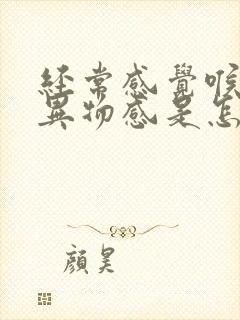 經常感覺喉
異物感是怎
顏昊